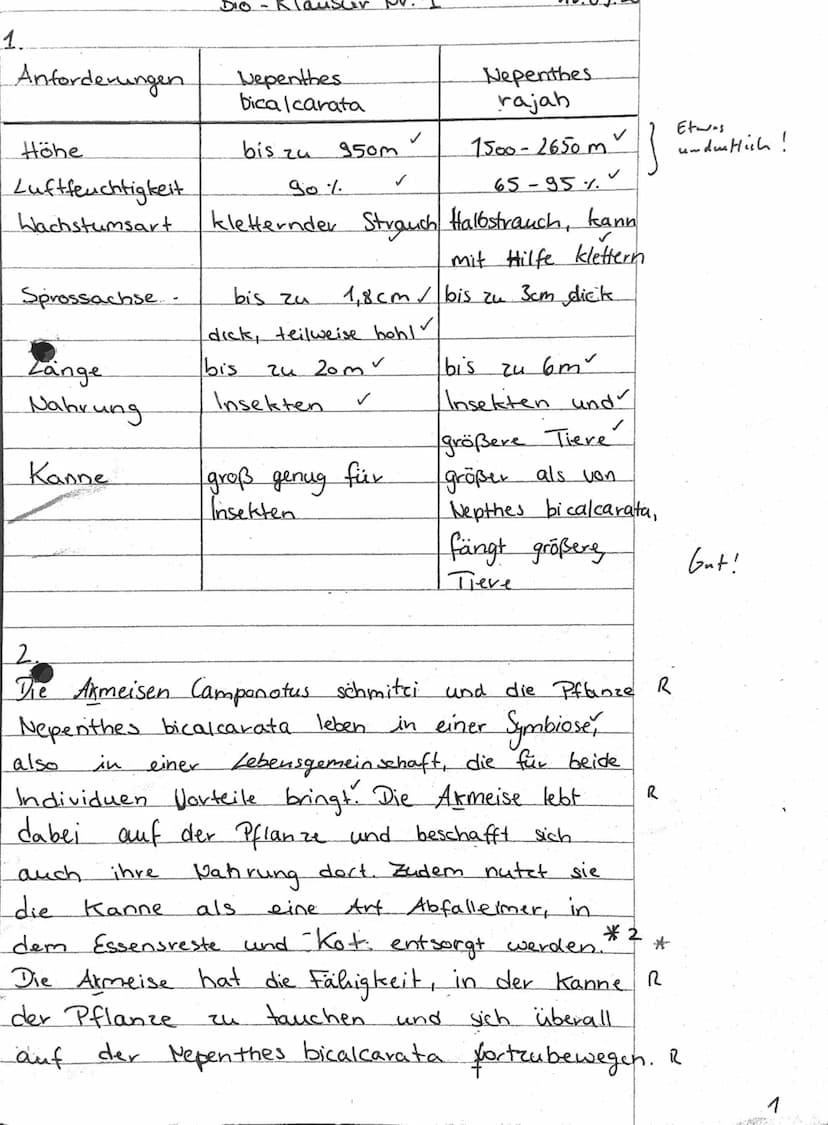 Bio - Klausur Nr. 1
1.
Anforderungen Nepenthes bicalcarata Nepenthes rajah
Höhe bis zu 950m ✓ 1500-2650 m ✓ Etwas undeutlich!
Luftfeuchtigkeit 90 % ✓ 65-95 % ✓
Wachstumsart kletternder Strauch Halbstrauch, kann
mit Hilfe klettern ✓
Sprossachse bis zu 1,8cm ✓ bis zu 3cm dick
dick, teilweise hohl ✓
Länge bis zu 20m ✓ bis zu 6m ✓
Nahrung Insekten ✓ Insekten und ✓
größere Tiere ✓
Kanne groß genug für größer als von
Insekten Nepthes bicalcarata,
fängt größere Gut!
Tiere
2.
Die Akmeisen Camponotus schmitzi und die Pflanze R
Nepenthes bicalcarata leben in einer Symbiose, ✓
also in einer Lebensgemeinschaft, die für beide
Individuen Vorteile bringt. ✓ Die Akmeise lebt R
dabei auf der Pflanze und beschafft sich
auch ihre Nahrung dort. Zudem nutzt sie
die Kanne als eine Art Abfalleimer, in
dem Essensreste und -Kot entsorgt werden. *2 *
Die Akmeise hat die Fähigkeit, in der Kanne R
der Pflanze zu tauchen und sich überall
auf der Nepenthes bicalcarata fortzubewegen. R
1